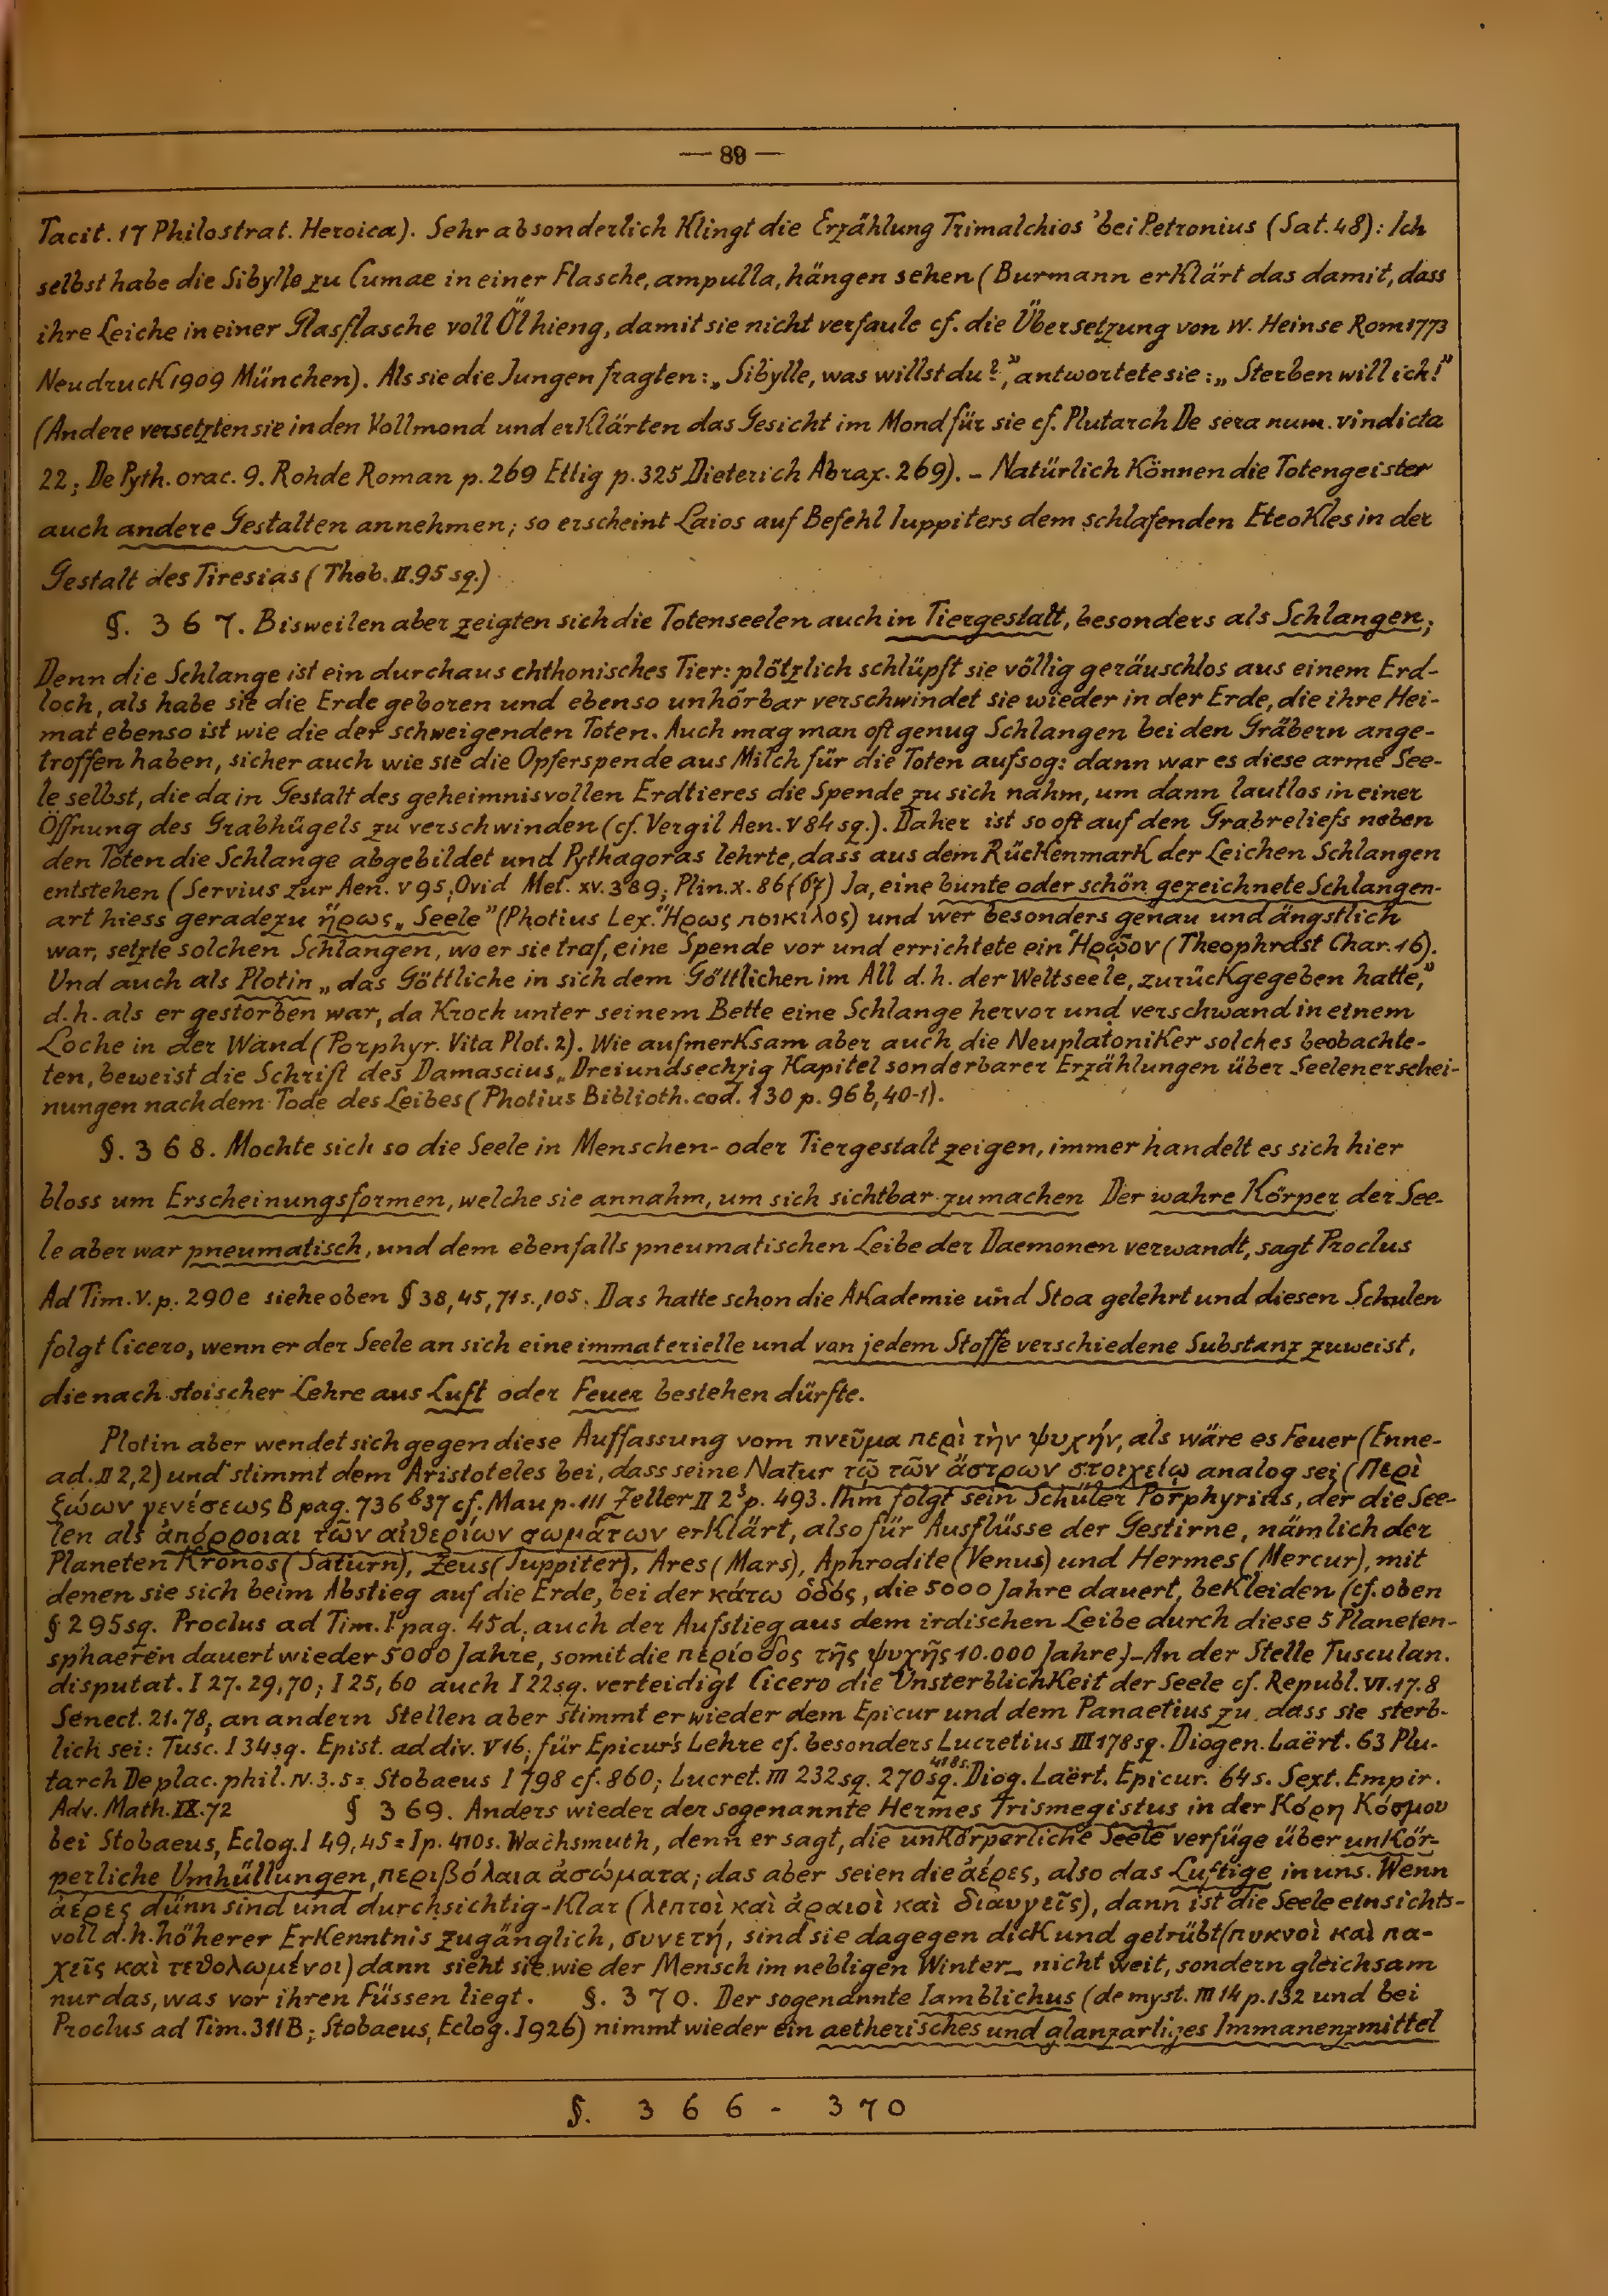 — 89 —
Tacit. 17 Philostrat. Heroica). Sehr absonderlich klingt die Erzählung Trimalchios' bei Petronius (Sat. 48): Ich
selbst habe die Sibylle zu Cumae in einer Flasche, ampulla, hängen sehen (Burmann erklärt das damit, dass
ihre Leiche in einer Glasflasche voll Öl hieng, damit sie nicht verfaule cf. die Übersetzung von W. Heinse Rom 1773
Neudruck 1909 München). Als sie die Jungen fragten: „Sibylle, was willst du?", antwortete sie: „Sterben will ich!"
(Andere versetzten sie in den Vollmond und erklärten das Gesicht im Mond für sie cf. Plutarch De sera num. vindicta
22; De Pyth. orac. 9. Rohde Roman p. 269 Ettig p. 325 Dieterich Abrax. 269). – Natürlich können die Totengeister
auch andere Gestalten annehmen; so erscheint Laios auf Befehl Iuppiters dem schlafenden Eteokles in der
Gestalt des Tiresias (Theb. II. 95 sq.)
§. 367. Bisweilen aber zeigten sich die Totenseelen auch in Tiergestalt, besonders als Schlangen;
Denn die Schlange ist ein durchaus chthonisches Tier: plötzlich schlüpft sie völlig geräuschlos aus einem Erd-
loch, als habe sie die Erde geboren und ebenso unhörbar verschwindet sie wieder in der Erde, die ihre Hei-
mat ebenso ist wie die der schweigenden Toten. Auch mag man oft genug Schlangen bei den Gräbern ange-
troffen haben, sicher auch wie sie die Opferspende aus Milch für die Toten aufsog: dann war es diese arme See-
le selbst, die da in Gestalt des geheimnisvollen Erdtieres die Spende zu sich nahm, um dann lautlos in einer
Öffnung des Grabhügels zu verschwinden (cf. Vergil Aen. V 84 sq.). Daher ist so oft auf den Grabreliefs neben
den Toten die Schlange abgebildet und Pythagoras lehrte, dass aus dem Rückenmark der Leichen Schlangen
entstehen (Servius zur Aen. V 95, Ovid Met. XV. 389; Plin. X. 86 (67) Ja, eine bunte oder schön gezeichnete Schlangen-
art hiess geradezu ἥρως „Seele" (Photius Lex. Ἥρως ποικίλος) und wer besonders genau und ängstlich
war, setzte solchen Schlangen, wo er sie traf, eine Spende vor und errichtete ein Ἡρῷον (Theophrast Char. 16).
Und auch als Plotin „das Göttliche in sich dem Göttlichen im All d. h. der Weltseele, zurückgegeben hatte,"
d. h. als er gestorben war, da kroch unter seinem Bette eine Schlange hervor und verschwand in einem
Loche in der Wand (Porphyr. Vita Plot. 2). Wie aufmerksam aber auch die Neuplatoniker solches beobachte-
ten, beweist die Schrift des Damascius „Dreiundsechzig Kapitel sonderbarer Erzählungen über Seelenerschei-
nungen nach dem Tode des Leibes (Photius Biblioth. cod. 130 p. 96 b, 40-1).
§. 368. Mochte sich so die Seele in Menschen- oder Tiergestalt zeigen, immer handelt es sich hier
bloss um Erscheinungsformen, welche sie annahm, um sich sichtbar zu machen Der wahre Körper der See-
le aber war pneumatisch, und dem ebenfalls pneumatischen Leibe der Daemonen verwandt, sagt Proclus
Ad Tim. V. p. 290 e siehe oben § 38, 45, 71 s., 105. Das hatte schon die Akademie und Stoa gelehrt und diesen Schulen
folgt Cicero, wenn er der Seele an sich eine immaterielle und von jedem Stoffe verschiedene Substanz zuweist,
die nach stoischer Lehre aus Luft oder Feuer bestehen dürfte.
Plotin aber wendet sich gegen diese Auffassung vom πνεῦμα περὶ τὴν ψυχήν, als wäre es Feuer (Enne-
ad. II 2, 2) und stimmt dem Aristoteles bei, dass seine Natur τῷ τῶν ἄστρων στοιχείῳ analog sei (Περὶ
ζώων γενέσεως B pag. 736 b 37 cf. Mau p. 111 Zeller II 2³ p. 493. Ihm folgt sein Schüler Porphyrius, der die See-
len als ἀπόρροιαι τῶν αἰθερίων σωμάτων erklärt, also für Ausflüsse der Gestirne, nämlich der
Planeten Kronos (Saturn), Zeus (Iuppiter), Ares (Mars), Aphrodite (Venus) und Hermes (Mercur), mit
denen sie sich beim Abstieg auf die Erde, bei der κάτω ὁδός, die 5000 Jahre dauert, bekleiden (cf. oben
§ 295 sq. Proclus ad Tim. I pag. 45 d, auch der Aufstieg aus dem irdischen Leibe durch diese 5 Planeten-
sphaeren dauert wieder 5000 Jahre, somit die περίοδος τῆς ψυχῆς 10.000 Jahre) – An der Stelle Tusculan.
disputat. I 27. 29, 70; I 25, 60 auch I 22 sq. verteidigt Cicero die Unsterblichkeit der Seele cf. Republ. VI. 17. 8
Senect. 21. 78, an andern Stellen aber stimmt er wieder dem Epicur und dem Panaetius zu, dass sie sterb-
lich sei: Tusc. I 34 sq. Epist. ad div. V 16; für Epicur's Lehre cf. besonders Lucretius III 178 sq. Diogen. Laërt. 63 Plu-
tarch De plac. phil. IV. 3. 5 = Stobaeus I 798 cf. 860; Lucret. III 232 sq. 270 sq. 418 s. Diog. Laërt. Epicur. 64 s. Sext. Empir.
Adv. Math. IX. 72 § 369. Anders wieder der sogenannte Hermes Trismegistus in der Κόρη Κόσμου
bei Stobaeus, Eclog. I 49, 45 = I p. 410 s. Wachsmuth, denn er sagt, die unkörperliche Seele verfüge über unkör-
perliche Umhüllungen, περιβόλαια ἀσώματα; das aber seien die ἀέρες, also das Luftige in uns. Wenn
ἀέρες dünn sind und durchsichtig-klar (λεπτοὶ καὶ ἀραιοὶ καὶ διαυγεῖς), dann ist die Seele einsichts-
voll d. h. höherer Erkenntnis zugänglich, συνετή, sind sie dagegen dick und getrübt (πυκνοὶ καὶ πα-
χεῖς καὶ τεθολωμένοι) dann sieht sie wie der Mensch im nebligen Winter – nicht weit, sondern gleichsam
nur das, was vor ihren Füssen liegt. §. 370. Der sogenannte Iamblichus (de myst. III 14 p. 132 und bei
Proclus ad Tim. 311 B; Stobaeus, Eclog. I 926) nimmt wieder ein aetherisches und glanzartiges Immanenzmittel
§. 366 - 370